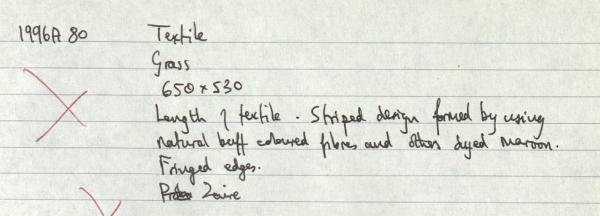 1996A 80 Textile
Grass
650 x 530
Length of textile. Striped design formed by using
natural buff coloured fibres and others dyed maroon.
Fringed edges.
Zaire